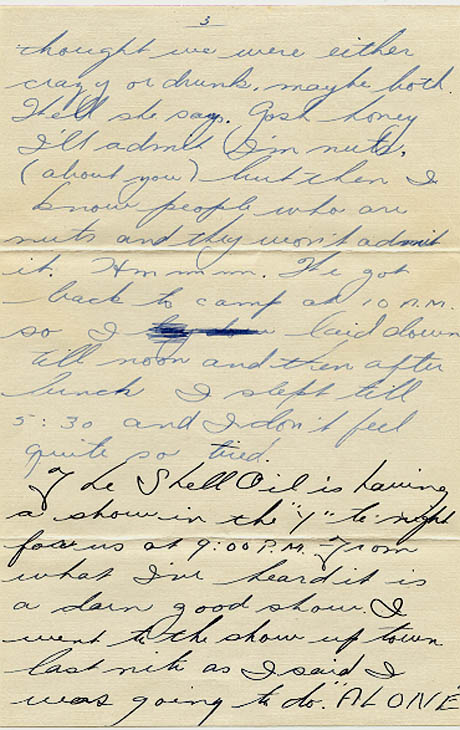 3
thought we were either
crazy or drunk, maybe both.
Hell she says. Gosh honey
I'll admit I'm nuts,
(about you) but then I
know people who are
nuts and they won't admit
it. Hmmmm. We got
back to camp at 10 A.M.
so I laid down
till noon and then after
lunch I slept till
5:30 and I don't feel
quite so tired.
The Shell Oil is having
a show in the "Y" to-night
for us at 9:00 P.M. From
what I've heard it is
a darn good show. I
went to the show up town
last nite as I said I
was going to do. "ALONE"